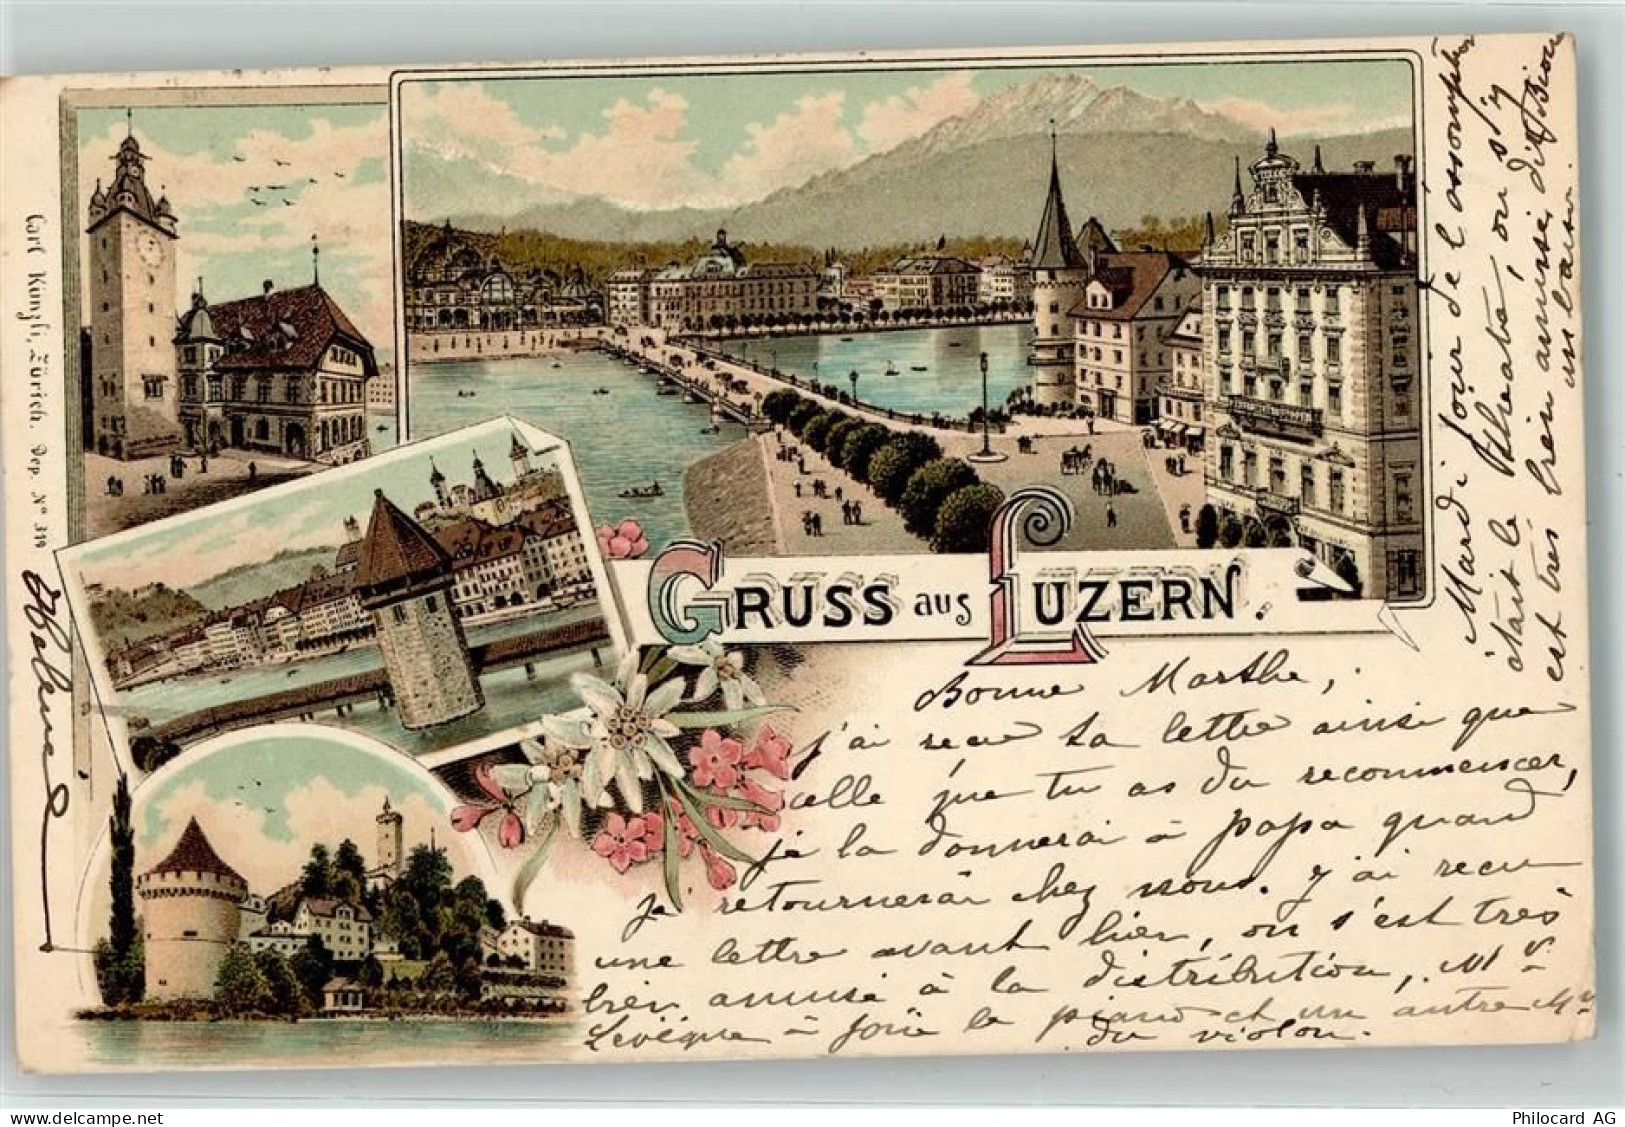 Carl Künzli, Zürich. Dep. Nº 319
GRUSS aus LUZERN.
Bonne Marthe,
j'ai reçu ta lettre ainsi que
celle que tu as du recommencer,
je la donnerai à papa quand
je retournerai chez nous. J'ai reçu
une lettre avant hier, on s'est très
bien amusé à la distribution, Mr
Levêque a joué le piano et un autre Mr
du violon.
Mardi jour de l'assomption
c'était le théatre, on s'y
est très bien amusé,
un baiser
Philocard AG